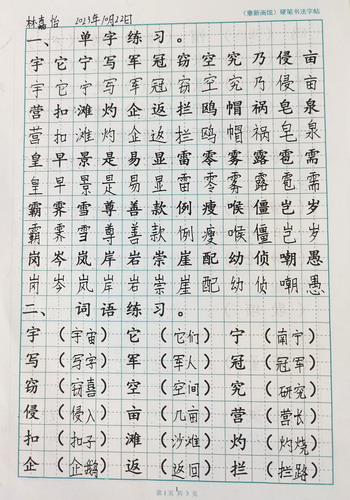 林嘉怡 2023年10月22日
硬笔书法字帖
一、单字练习。
宇它宁写军冠窃空究乃侵亩
宇它宁写军冠窃空究乃侵亩
营扣滩灼企返拦鸥帽祸皂泉
营扣滩灼企返拦鸥帽祸皂泉
皇早景是易显雷零雾露雹需
皇早景是易显雷零雾露雹需
霸霁雪尊善款例瘦喉僵岂岁
霸霁雪尊善款例瘦喉僵岂岁
岗岑岚岸岩崇崖配幼侦嘲愚
岗岑岚岸岩崇崖配幼侦嘲愚
二、词语练习。
宇(宇宙) 它(它们) 宁(南宁)
写(写字) 军(军人) 冠(冠军)
窃(窃喜) 空(空间) 究(研究)
侵(侵入) 亩(几亩) 营(营长)
扣(扣子) 滩(沙滩) 灼(灼烧)
企(企鹅) 返(返回) 拦(拦路)
第1页 共3页